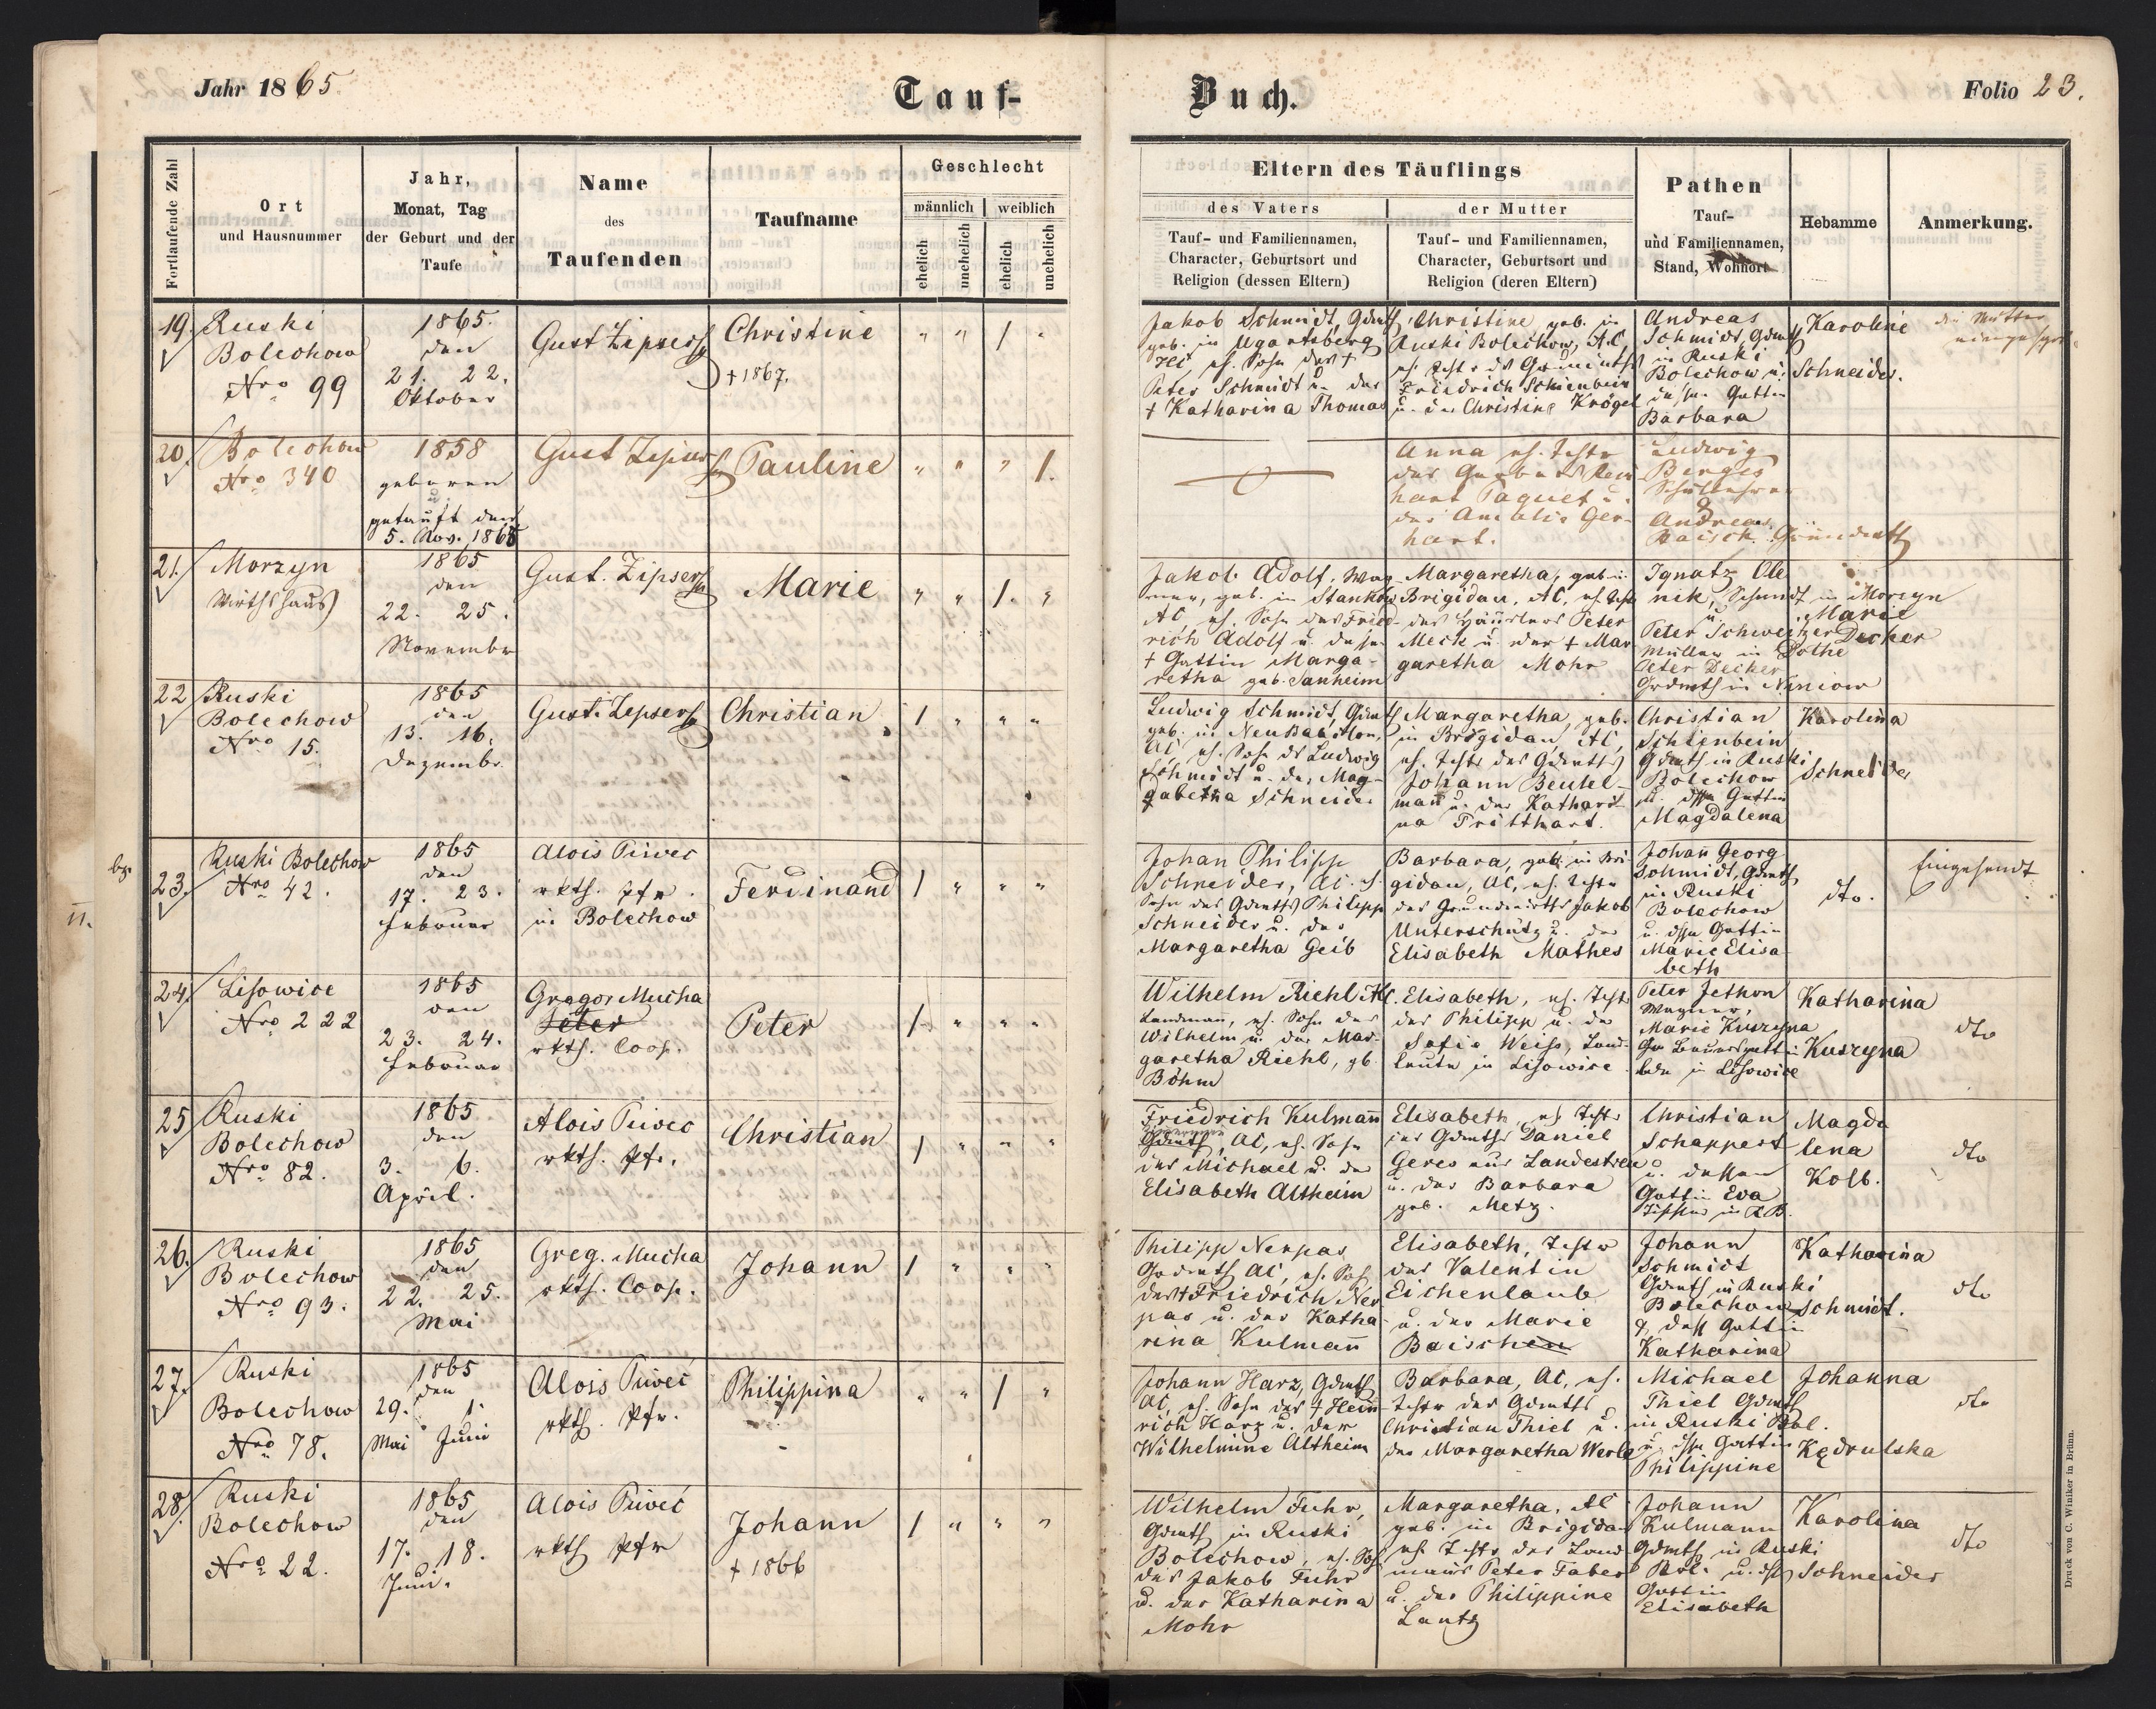 Jahr 1865.
Tauf-
Buch.
Folio 23.
Fortlaufende Zahl
Ort
und Hausnummer
Jahr,
Monat, Tag
der Geburt und der
Taufe
Name
des
Taufenden
Taufname
Geschlecht
männlich
weiblich
ehelich
unehelich
ehelich
unehelich
Eltern des Täuflings
des Vaters
Tauf- und Familiennamen,
Character, Geburtsort und
Religion (dessen Eltern)
der Mutter
Tauf- und Familiennamen,
Character, Geburtsort und
Religion (deren Eltern)
Pathen
Tauf-
und Familiennamen,
Stand, Wohnort
Hebamme
Anmerkung.
19.
Ruski
Bolechow
Nro 99
1865.
den
21. 22.
Oktober
Gust Zipser
Christine
+ 1867.
" " / "
Jakob Schmidt,
geb. in Ugartsberg
eh. Sohn des +
Peter Schmidt u. der
+ Katharina Thomas
Christine, geb. in
Ruski Bolechow, AC,
Friedrich Schienbein
u. der Christine Krögel
Andreas
Schmidt,
in Ruski
Bolechow u.
dessen Gattin
Barbara
Karoline
Schneider.
die Mutter
20.
Bolechow
Nro 340
1858
geboren
u.
getauft den
5. Nov. 1865
Gust Zipser
Pauline
" " " /.
Anna eh. Tochter
des
hart Paquet u.
der Amalie Ger-
hart.
Ludwig
Berges
Schullehrer
&
Andreas
Baisch. Grundwirth
21.
Morzyn
Wirthshaus
1865
den
22. 25.
November
Gust. Zipser
Marie
" " /. "
Jakob Adolf,
geb. in Stankow
AC, eh. Sohn des Fried-
rich Adolf u. dessen
+ Gattin Marga-
retha geb. Sanheim
Margaretha, geb. in
Brigidau, AC, eh. Tochter
des Häuslers Peter
Meck u. der + Mar
garetha Mohr
Ignatz
in Morzyn
u.
Peter Schweitzer
Müller in
Peter Decker
Grdwth in
Marie
Decker
22
Ruski
Bolechow
Nro 15.
1865
den
13. 16.
Dezember
Gust. Zipser
Christian
/ " " "
Ludwig Schmidt, Grdwth
geb. in NeuBabilon,
AC, eh. Sohn des Ludwig
Schmidt u. der Mag-
dalena Schneider
Margaretha, geb.
in Brigidau, AC,
eh. Tochter des Grdwths
Johann Beutel-
mann u. der Kathari-
na Tritthart.
Christian
Schienbein
Grdwth in Ruski
Bolechow
u. dssn Gattin
Magdalena
Karolina
Schneider
23.
Ruski Bolechow
Nro 42.
1865
den
17. 23.
Februar
Alois Piwec
rkth. Pfr.
in Bolechow
Ferdinand
/ " " "
Johan Philipp
Schneider, AC. eh.
Sohn des Grdwths Philipp
Schneider u. der
Margaretha Geib
Barbara, geb. in Bri-
gidau, AC, eh. Tochter
des Grundwirths Jakob
Unterschütz u. der
Elisabeth Mathes
Johann Georg
Schmidt, Grdwth
in Ruski
Bolechow
u. dssn Gattin
Marie Elisa
beth
dto.
Eingesendt
24
Lisowice
Nro 222
1865
den
23. 24.
Februar
Gregor Mucha
Peter
rkth. Coop.
Peter
/ " " "
Wilhelm Riehl AC.
Landmann, eh. Sohn des
Wilhelm u. der Mar-
garetha Riehl, gb.
Böhm
Elisabeth, eh. Tochter
des Philipp u. der
Sofie Weiss, Land-
leute in Lisowice
Peter Jethon
Wagner,
Marie Kuszyna
in Lisowice
Katharina
Kuszyna
dto
25
Ruski
Bolechow
Nro 82.
1865
den
3. 6.
April.
Alois Piwec
rkth. Pfr.
Christian
/ " " "
Friedrich Kulmann
Grdwth, AC, eh. Sohn
des Michael u. der
Elisabeth Altheim
Elisabeth, eh. Tochter
des Grdwths Daniel
Geres aus Landestreu
u. der Barbara
geb. Metz.
Christian
Schappert
u. dessen
Gattin Eva
in R.B.
Magda
lena
Kolb.
dto
26.
Ruski
Bolechow
Nro 93.
1865
den
22. 25.
Mai
Greg. Mucha
rkth. Coop.
Johann
/ " " "
Philipp Nerpas
Grdwth AC, eh. Sohn
des + Friedrich Ner
pas u. der Katha
rina Kulmann
Elisabeth, Tochter
des Valentin
Eichenlaub
u. der Marie
Baischen
Johann
Schmidt
Grdwth in Ruski
Bolechow
& dess Gattin
Katharina
Katharina
Schmidt.
dto
27.
Ruski
Bolechow
Nro 78.
1865
den
29. 1.
Mai Juni
Alois Piwec
rkth. Pfr.
Philippina
" " / "
Johann Harz, Grdwth
AC, eh. Sohn des + Hein-
rich Harz u. der
Wilhelmine Altheim
Barbara, AC, eh.
Tochter des Grdwths
Christian Thiel u.
der Margaretha Werle
Michael
Thiel Grdwth
in Ruski Bol.
u. dssn Gattin
Philippine
Johanna
Kędrulska
dto
28.
Ruski
Bolechow
Nro 22.
1865
den
17. 18.
Juni.
Alois Piwec
rkth Pfr
Johann
+ 1866
/ " " "
Wilhelm Fuhr,
Grdwth in Ruski
Bolechow, eh. Sohn
des Jakob Fuhr
u. der Katharina
Mohr
Margaretha, AC
geb. in Brigidau
eh. Tochter des Land-
manns Peter Faber
u. der Philippine
Lautz
Johann
Kulmann
Grdwth in Ruski
Bol. u. dssn
Gattin
Elisabeth
Karolina
Schneider
dto
Druck von C. Winiker in Brünn.